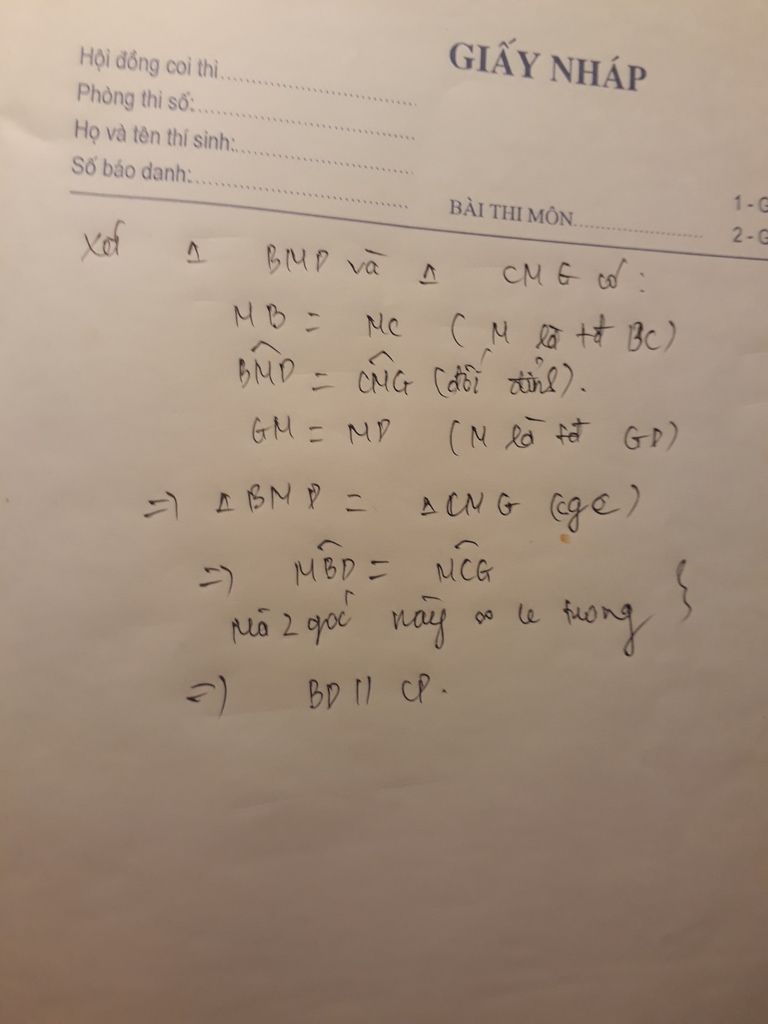 Hội đồng coi thi
GIẤY NHÁP
Phòng thi số:
Họ và tên thí sinh:
Số báo danh:
BÀI THI MÔN
1 - G
2 - G
Xét Δ BMD và Δ CMG có:
MB = MC (M là tđ BC)
BMD = CMG (đối đỉnh).
GM = MD (M là tđ GD)
=> Δ BMD = Δ CMG (cgc)
=> MBD = MCG
Mà 2 góc này ∞ le trong }
=> BD // CP.